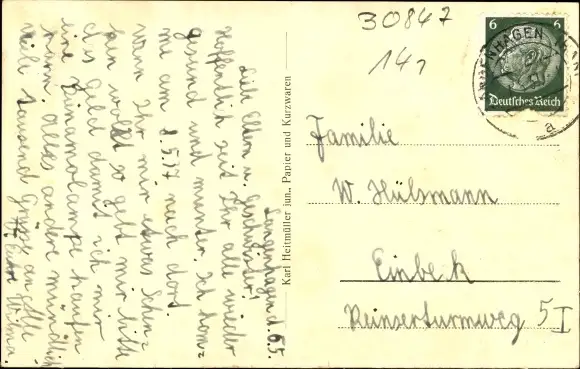 30847
14,
6 6
Deutsches Reich
a
Langenhagen d. 6.5.
Liebe Eltern u. Geschwister!
Hoffentlich seit Ihr alle wieder
gesund und munter. Ich kom=
me am 8.5. nach dort
wenn Ihr mir etwas Schin=
ken wollt so gebt mir bitte
das Geld damit ich mir
eine Dinamolampe kaufen
kann. Alles andere mündlich
Viele tausend Grüße an alle
Eure Wilma.
Karl Heitmüller jun., Papier und Kurzwaren
Familie
W. Hülsmann
Einbeck
Reinserturmweg 5 I